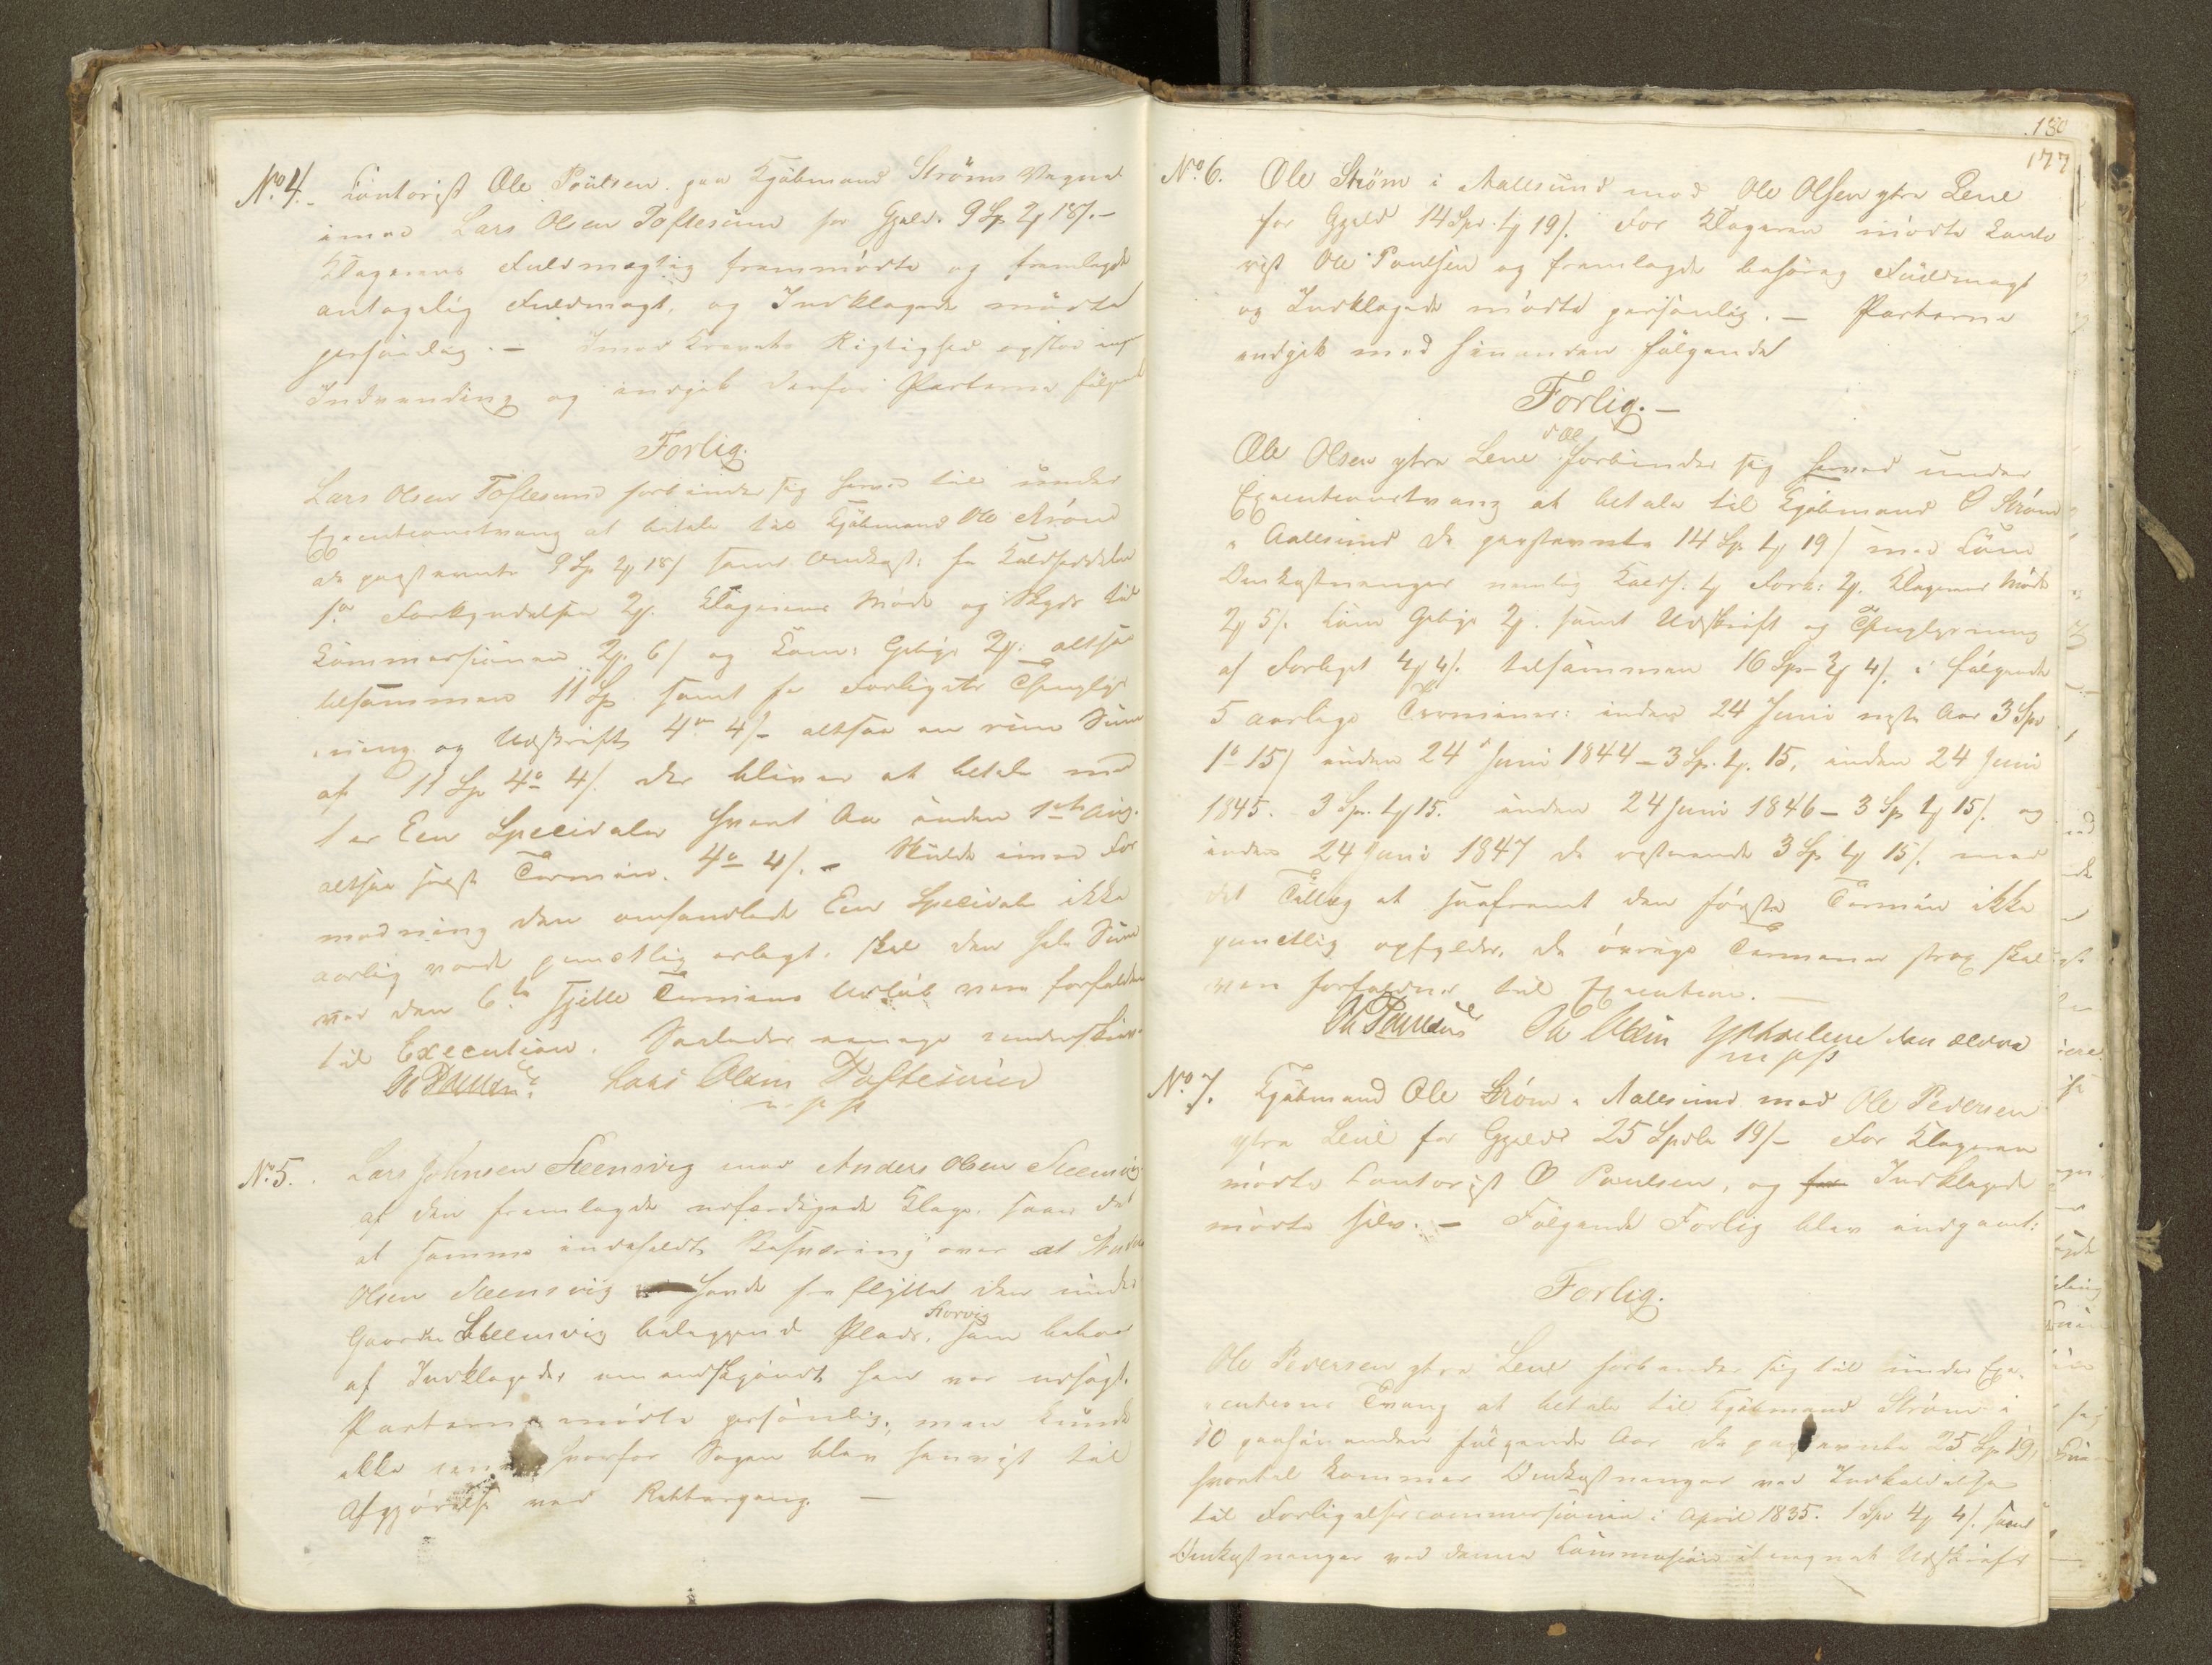 No 4. Contorist Ole Poulsen paa Kjøbmand Strøms Vegne
imod Lars Olsen Toftesund for Gjæld 9 Sp 2 18/. –
Klagerens Fuldmægtig fremmødte og fremlagde
antagelig Fuldmagt, og Indklagede mødte
personlig. – Imod Kravets Rigtighed opstod ingen
Indvending og indgik derfor Parterne følgende
Forlig.
Lars Olsen Toftesund forbinder sig herved til under
Executionstvang at betale til Kjøbmand Ole Strøm
de paastævnte 9 Sp 2 18/ samt Omkost: for Kaldseddelen
for Forkyndelsen 2. Klagerens Møde og Skyds til
Commissionen 2. 6/ og Com: Gebyr 2. altsaa
tilsammen 11 Sp samt for Forligets Thinglys
ning og Udskrift 4 4/- altsaa en ren Sum
af 11 Sp 4 4/. der bliver at betale med
Een Speciedaler hvert Aar inden 1ste Aug.
altsaa sidste Termin. 4 4/. – Skulde imod For
modning den omhandlede Een Speciedaler ikke
aarlig vorde punctlig erlagt, skal den hele Sum
ved den 6te Termins Udløb være forfalden
til Execution. Saaledes underskrive
Ol Poulsen. Lars Olsen Toftesund
m. p. p.
No 5. Lars Johnsen Steensvig mod Anders Olsen Steensvig
af den fremlagde udfærdigede Klage saaes det
at samme indeholdt Besværing over at Anders
Olsen Steensvig havde fra flyttet den under
Gaarden Steensvig beliggende Plads, Korvig som beboes
af Indklagede, uanseet han var udsagt.
Parterne mødte personlig, men kunde
ikke hvorfor Sagen blev henvist til
Afgjørelse ved Rettergang. –
180
177
No 6. Ole Strøm i Aalesund mod Ole Olsen ytre Lene
for Gjæld 14 Spd: 1 19/. For Klageren mødte Conto
rist Ole Poulsen og fremlagde behørig Fuldmagt
og Indklagede mødte personlig. – Parterne
indgik med hinanden følgende
Forlig. –
Ole Olsen ytre Lene forbinder sig herved under
Executionstvang at betale til Kjøbmand O Strøm
i Aalesund de paastævnte 14 Sp 1 19/ med Com
Omkostninger nemlig Kalds: 1 Fork: 2. Klagerens Møde
2 5/. Com Gebyr 2. samt Udskrift og Thinglysning
af Forliget 4 4/. tilsammen 16 Sp – 3 4/. i følgende
5 aarlige Terminer: inden 24 Juni næste Aar 3 Spd
1 15/ inden 24 Juni 1844 – 3 Sp. 1. 15, inden 24 Juni
1845. 3 Sp. 1 15. inden 24 Juni 1846 – 3 Sp 1 15/. og
inden 24 Juni 1847 de resterende 3 Sp 1 15/. med
det Tillæg at saafremt den første Termin ikke
punctlig opfyldes, de øvrige Terminer strax skal
være forfaldne til Execution. –
Ol Poulsen Ole Olsen Ytrelene den ældre
m p p
No 7. Kjøbmand Ole Strøm i Aalesund mod Ole Pedersen
ytre Lene for Gjæld 25 Spdlr 19/– For Klageren
mødte Contorist O Poulsen, og for Indklagede
mødte selv. – Følgende Forlig blev indgaaet:
Forlig.
Ole Pedersen ytre Lene forbinder sig til under Exe
cutions Tvang at betale til Kjøbmand Strøm i
10 paahinanden følgende Aar de paastævnte 25 Sp 19/
hvortil kommer Omkostninger ved Indkaldelse
til Forligelsescommissionen i April 1835. 1 Spd 4 4/. samt
Omkostninger ved denne Commission iberegnet Udskrift